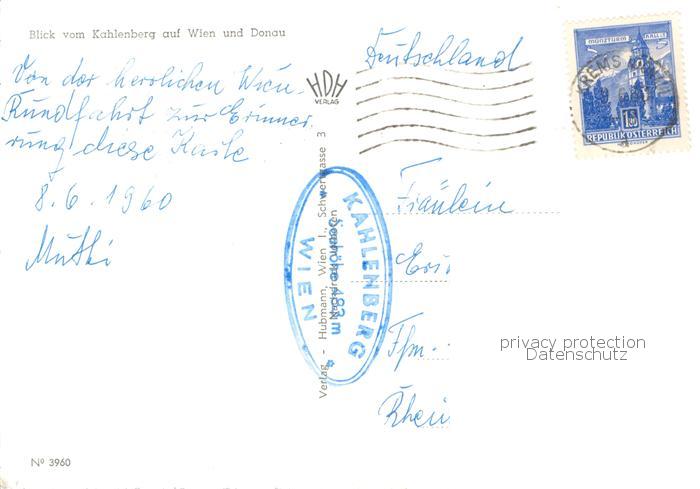 Blick vom Kahlenberg auf Wien und Donau
Von der herrlichen Wien-
Rundfahrt zur Erinne-
rung diese Karte
8.6.1960
Mutti
HDH
VERLAG
Verlag - Hubmann, Wien I., Schwertgasse 3
KAHLENBERG
Seehöhe 483 m
WIEN
Deutschland
MÜNZTURM HALL I.T.
KREMS
1.50
REPUBLIK ÖSTERREICH
Fräulein
Eri
Rhein
privacy protection
Datenschutz
Nº 3960